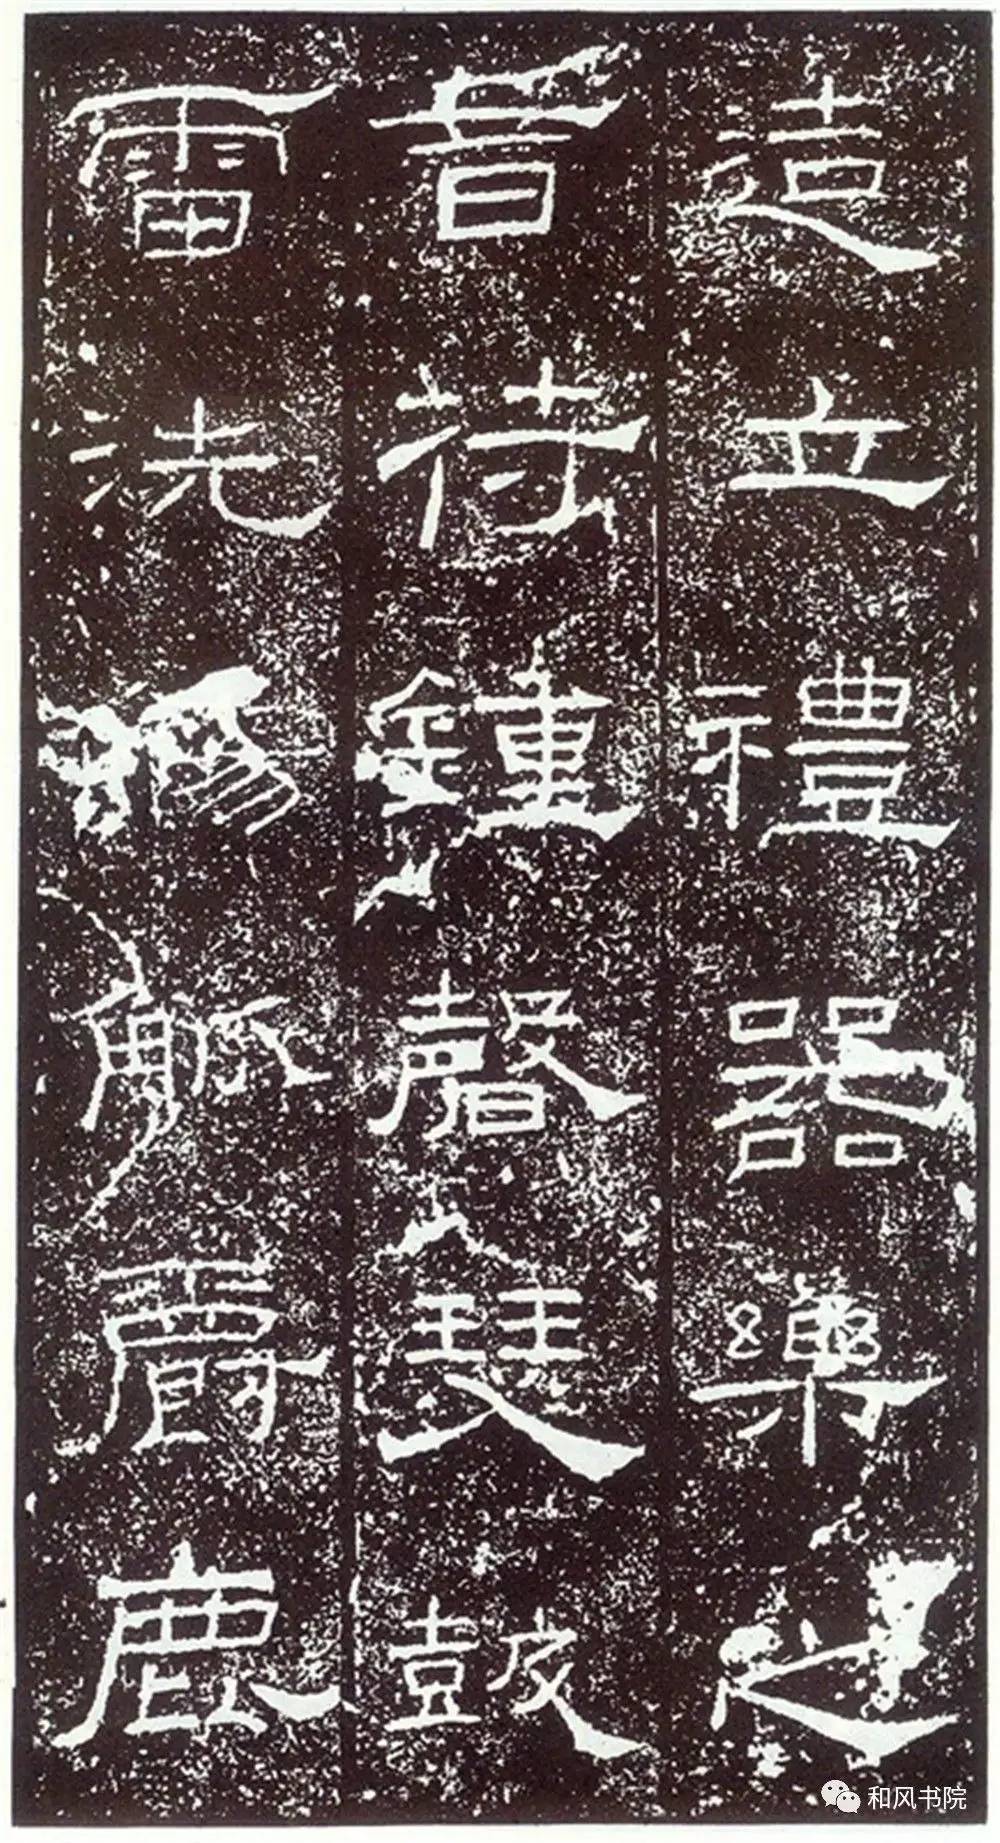 造立禮器樂之
音苻鍾磬瑟鼓
雷洗觴觚爵鹿
和风书院